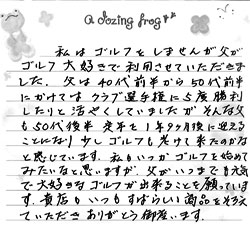 a dozing frog
私はゴルフをしませんが父が
ゴルフ大好きで利用させていただきま
した。父は40代前半から50代前半
にかけてはクラブ選手権に5度勝利
したりと活やくしていましたがそんな父
も50代後半 定年を1年9ヶ月後に迎える
ことになり 少しゴルフも老けて来たのかな
と感じています。私もいつかゴルフを始めて
みたいなと思いますが、父がいつまでも元気
で大好きなゴルフが出来ることを願っていま
す。貴店もいつもすばらしい商品をそろえ
ていただきありがとう御座います。